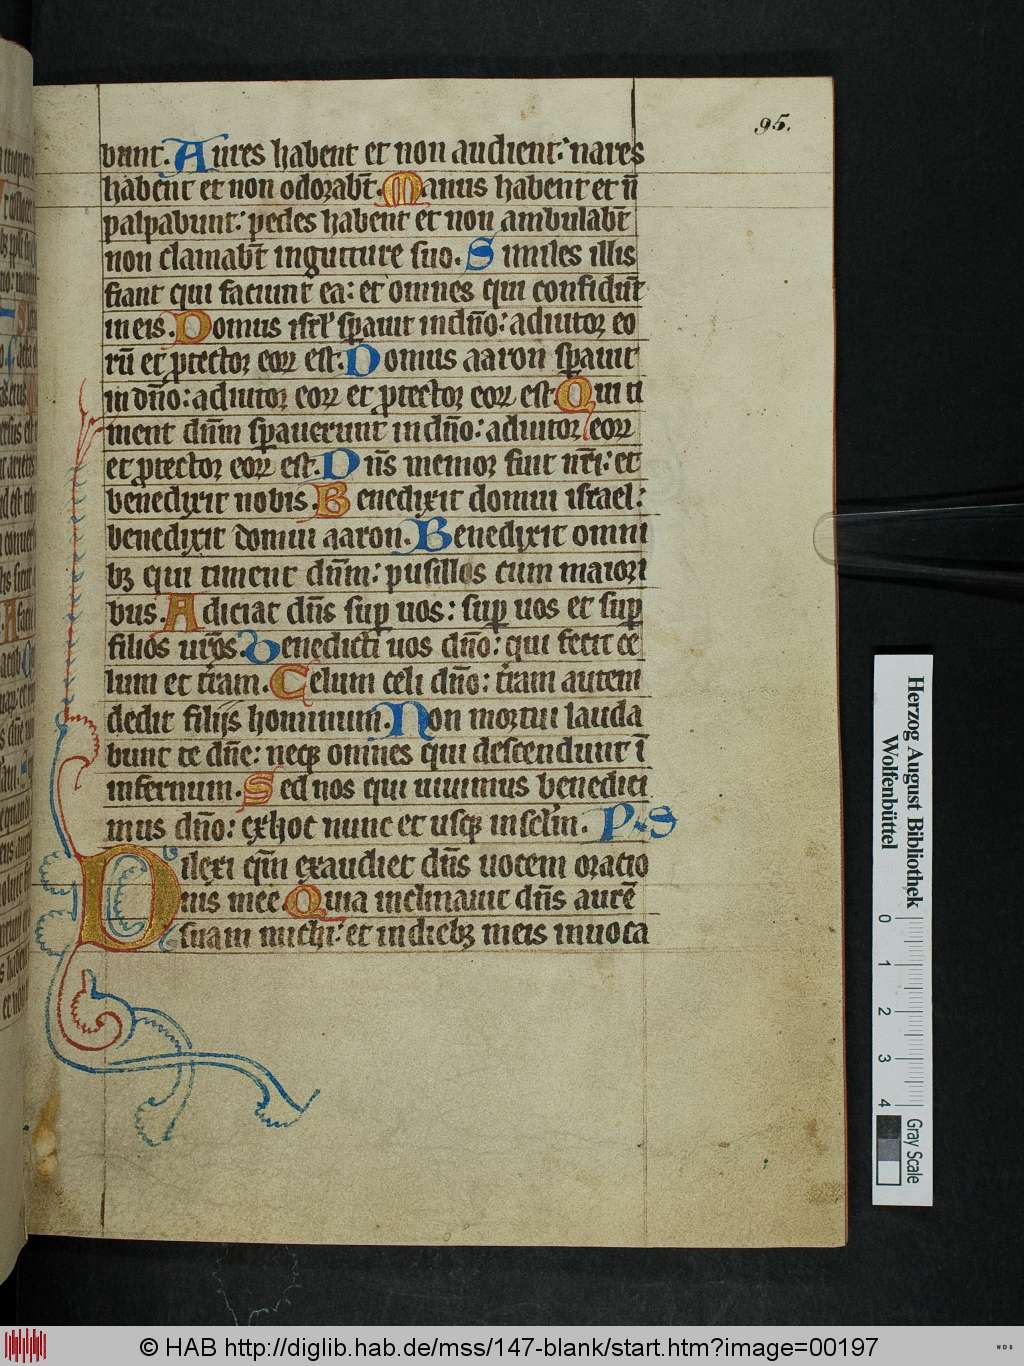 95.
bunt. Aures habent et non audient: nares
habent et non odorabt̄. Manus habent et n̄
palpabunt: pedes habent et non ambulabt̄
non clamabt̄ in gutture suo. Similes illis
fiant qui faciunt ea: et omnes qui confidūt
in eis. Domus isrl' sꝑauit in dn̄o: adiutoꝛ eo
rū et ꝓtectoꝛ eoꝝ est. Domus aaron sꝑauit
in dn̄o: adiutoꝛ eoꝝ et ꝓtectoꝛ eoꝝ est. Qui ti
ment dn̄m sꝑauerunt in dn̄o: adiutoꝛ eoꝝ
et ꝓtectoꝛ eoꝝ est. Dn̄s memoꝛ fuit nr̄i: et
benedixit nobis. Benedixit domui israel:
benedixit domui aaron. Benedixit omni
bꝫ qui timent dn̄m: pusillos cum maioꝛi
bus. Adiciat dn̄s suꝑ uos: suꝑ uos et suꝑ
filios ur̄os. Benedicti uos dn̄o: qui fecit ce
lum et t̄ram. Celum celi dn̄o: t̄ram autem
dedit filijs hominum. Non moꝛtui lauda
bunt te dn̄e: neqꝫ omnes qui descendunt ī
infernum. Sed nos qui uiuimus benedici
mus dn̄o: ex hoc nunc et usqꝫ in sc̄lm. PS
Dilexi qm̄ exaudiet dn̄s uocem oratio
nis mee. Quia inclinauit dn̄s aurē
suam michi: et in diebꝫ meis inuoca
Herzog August Bibliothek
Wolfenbüttel
0 1 2 3 4
Gray Scale
© HAB http://diglib.hab.de/mss/147-blank/start.htm?image=00197